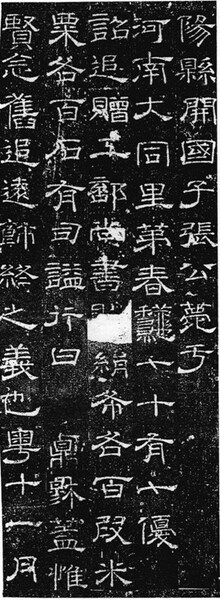 陽縣開國子張公薨于
河南大同里第春龝七十有七優
詔追贈工部尚書絹布各百段米
粟各百石有司謚行曰蓋惟
賢念舊追遠飾終之義也粵十一月